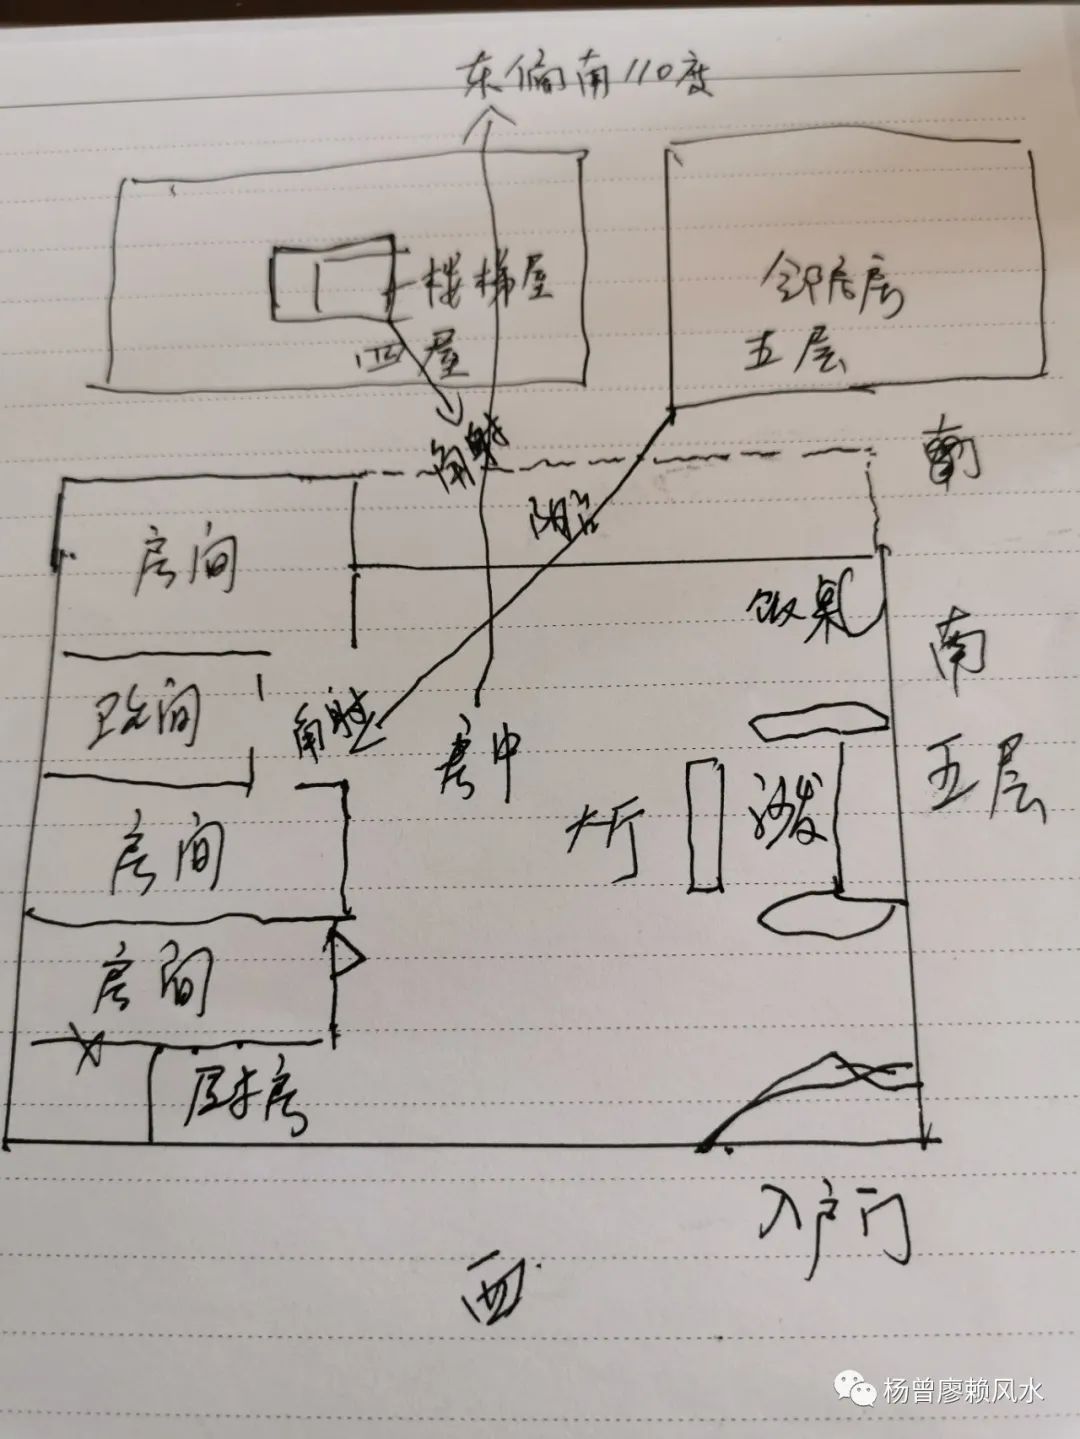 东偏南110度
楼梯屋
四层
邻居房
五层
角射
阳台
房间
饭桌
南
卫生间
角射
宅中
五层
大厅
沙发
房间
房间
厨房
入户门
西
杨曾廖赖风水